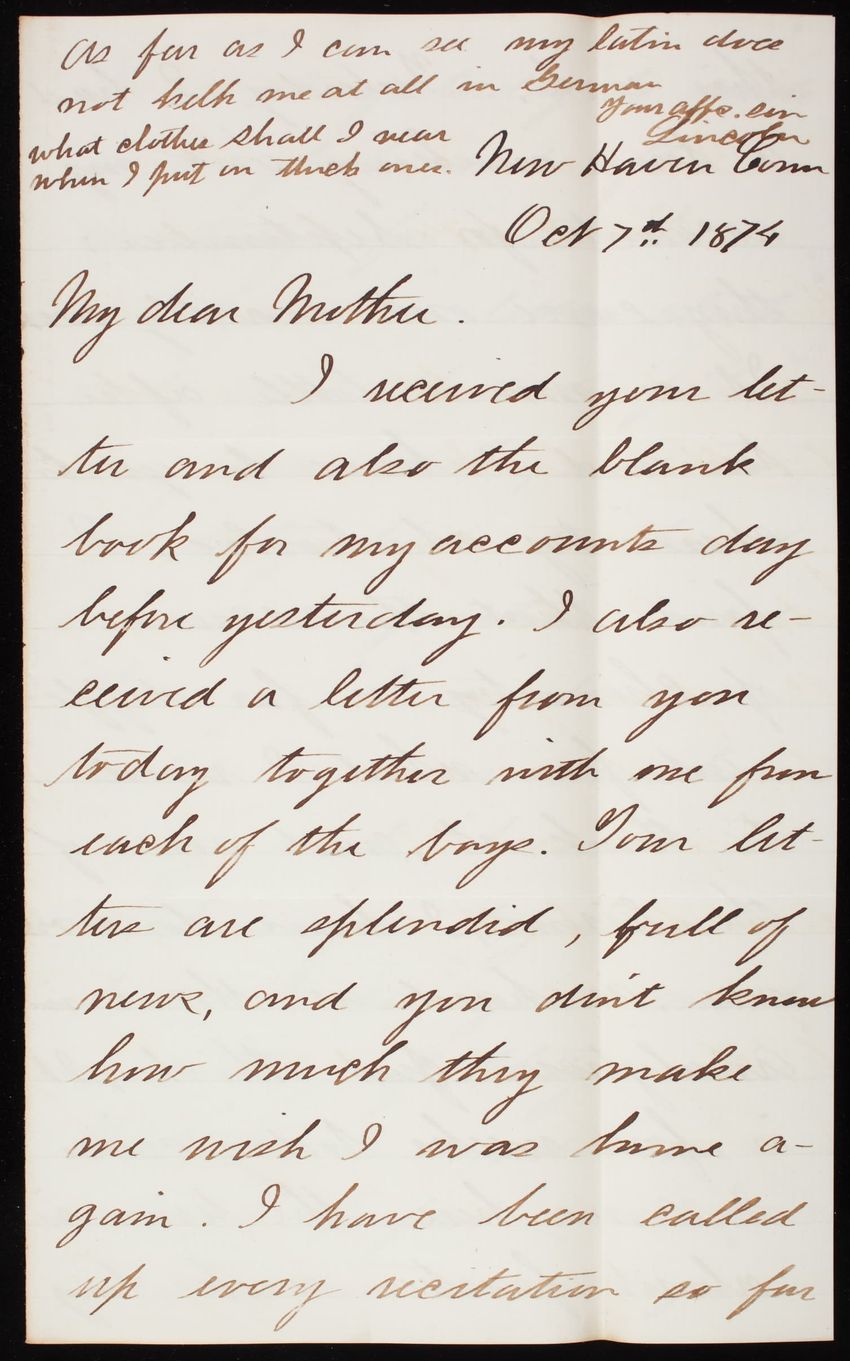 As far as I can see my latin does
not help me at all in German
Your affc. son
Lincoln
what clothes shall I wear
when I put on thick ones.
New Haven Conn
Oct 7d. 1874
My dear Mother.
I received your let-
ter and also the blank
book for my accounts day
before yesterday. I also re-
ceived a letter from you
today together with one from
each of the boys. Your let-
ters are splendid, full of
news, and you don't know
how much they make
me wish I was home a-
gain. I have been called
up every recitation so far